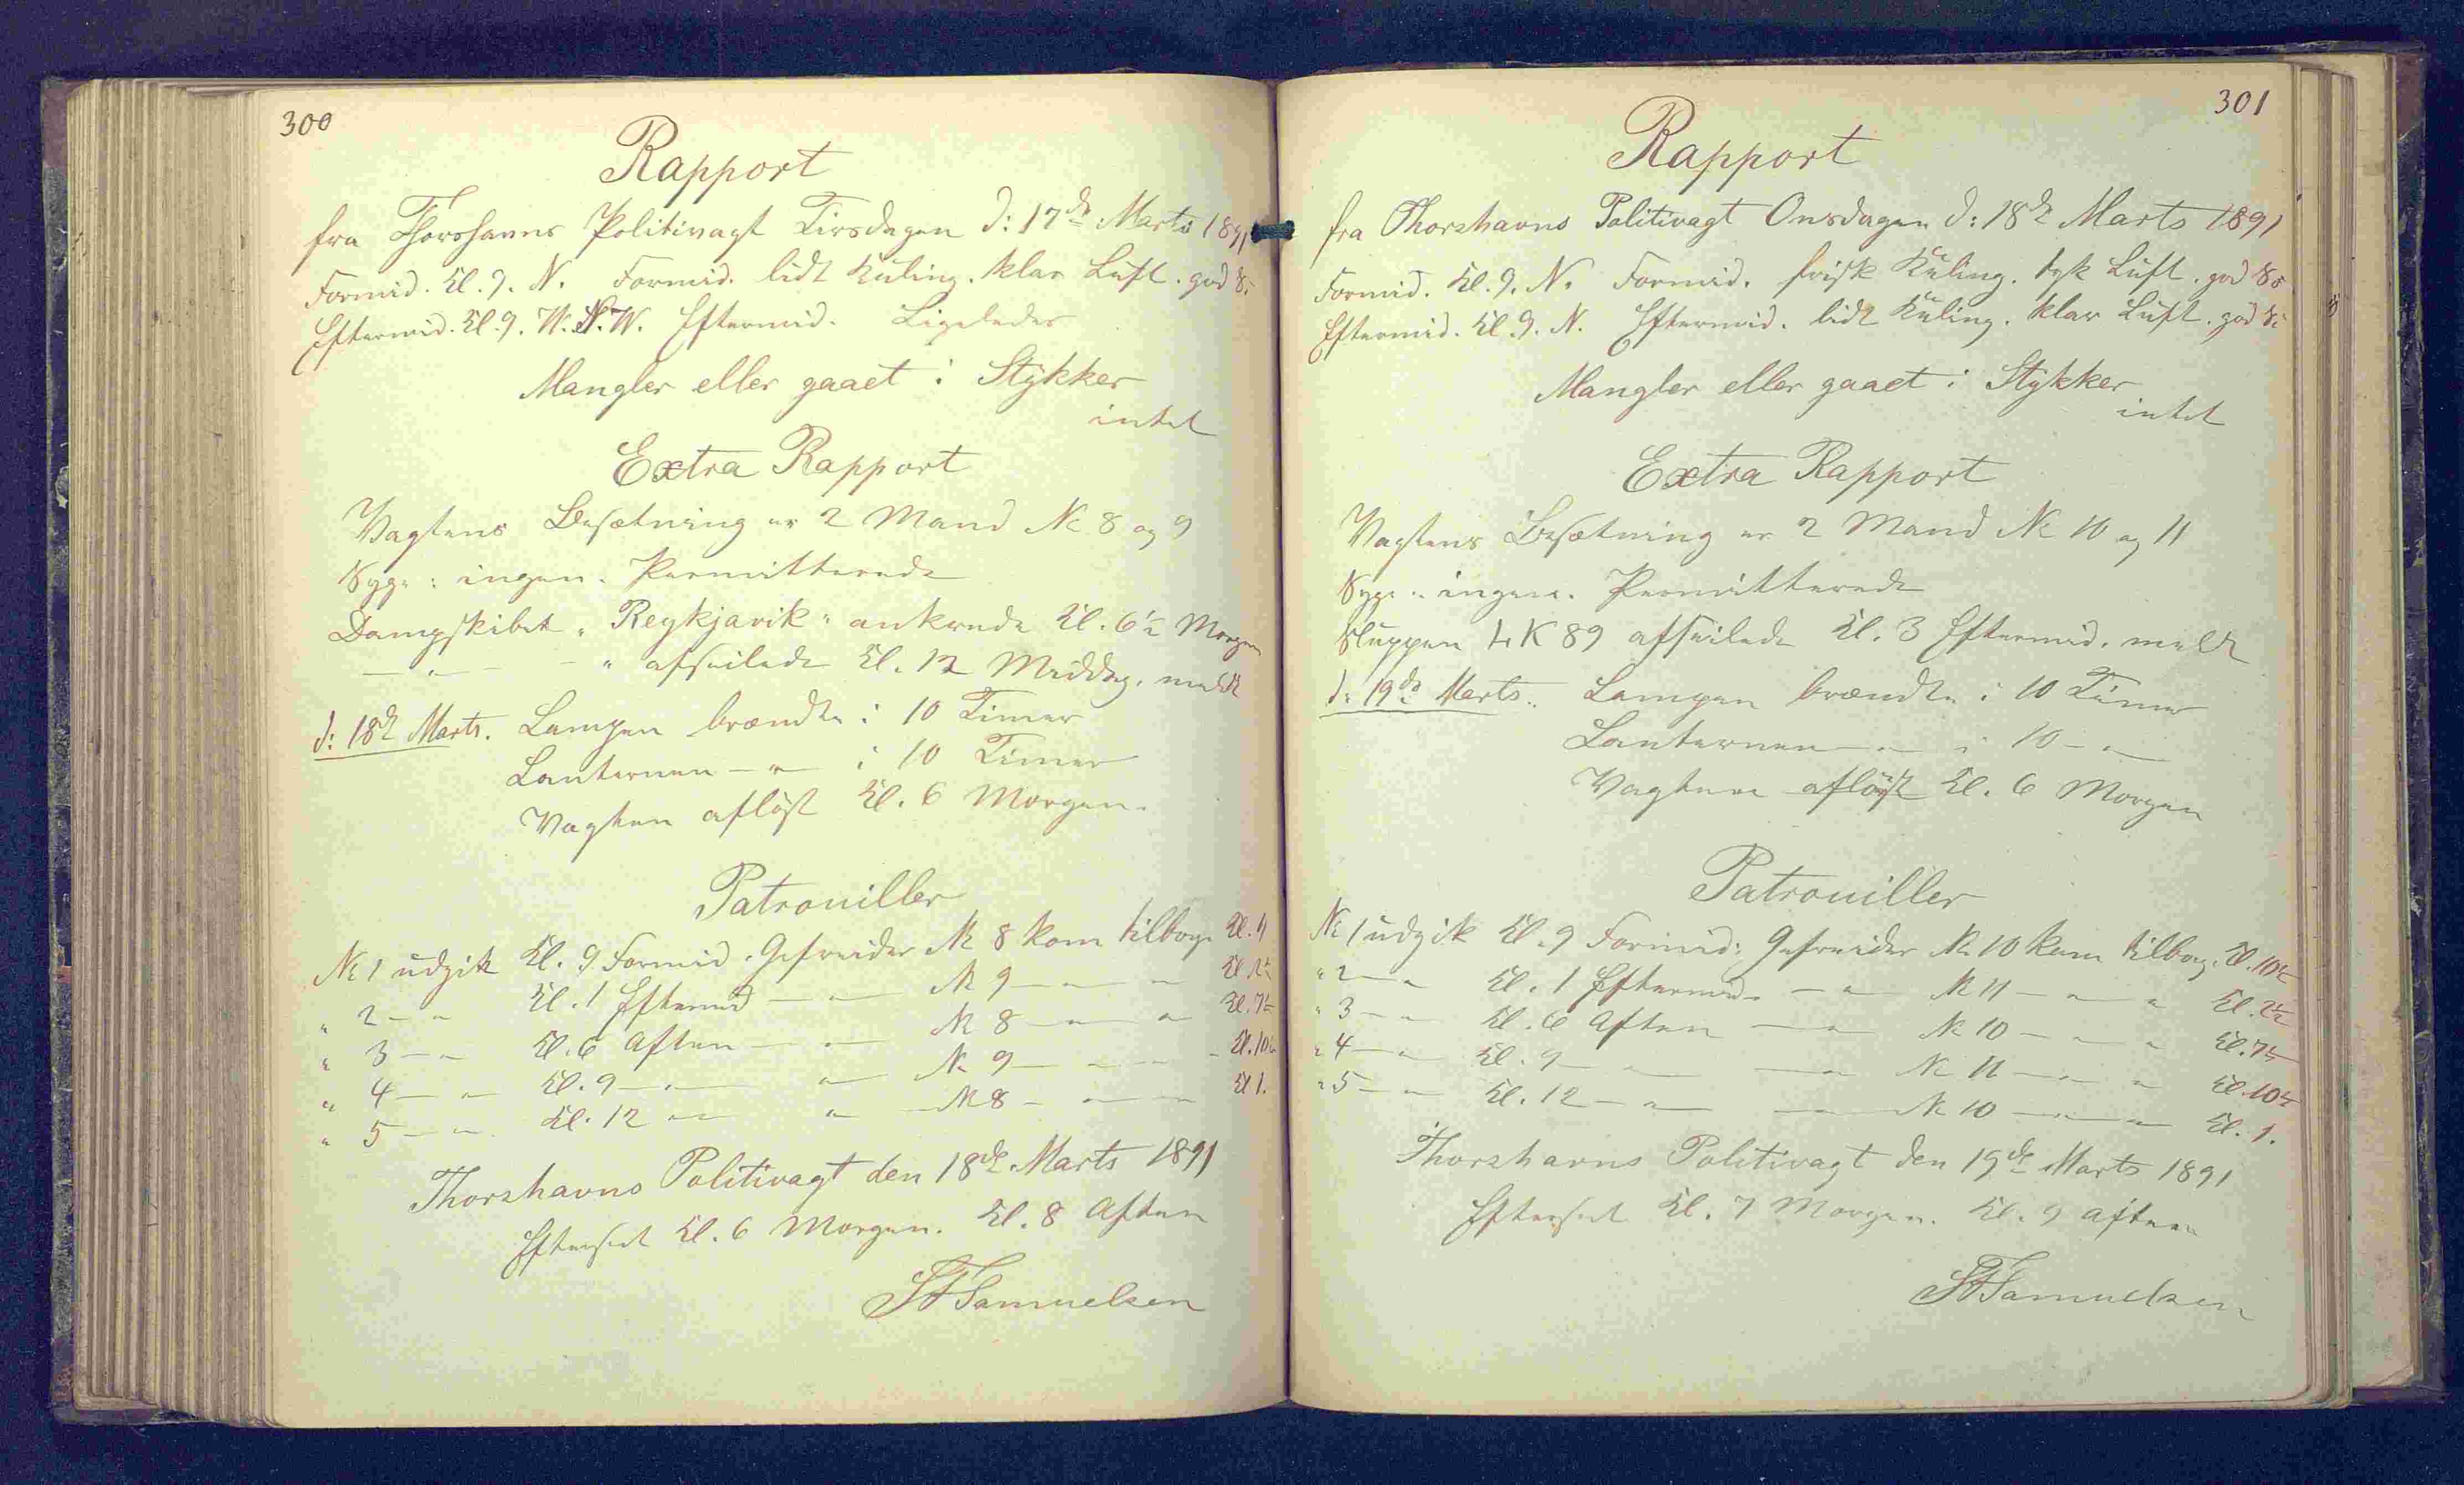 300
Rapport
fra Thorshavns Politivagt Tirsdagen d: 17de Marts 1891
Formid. Kl. 9. N. Formid. lidt Kuling. klar Luft. god S:
Eftermid. Kl. 9. W.N.W. Eftermid. Ligeledes
Mangler eller gaaet i Stykker
intet
Extra Rapport
Vagtens Besætning er 2 Mand No 8 og 9
Syge: ingen. Permitterede
Dampskibet "Reykjavik" ankrede Kl. 6½ Morgen
— " — — " afseilede Kl. 12 Middag. meldt
d: 18de Marts. Lampen brændte i 10 Timer
Lanternen — " — i 10 Timer
Vagten afløst Kl. 6 Morgen.
Patrouiller
No 1 udgik Kl. 9 Formid. Gefreider No 8 kom tilbage Kl. 11
" 2 — " Kl. 1 Eftermid — " — No 9 — " — " Kl. 2½
" 3 — " Kl. 6 Aften — " — No 8 — " — " Kl. 7½
" 4 — " Kl. 9 — " — " — No 9 — " — " Kl. 10½
" 5 — " Kl. 12 — " — " — No 8 — " — " Kl 1.
Thorshavns Politivagt den 18de Marts 1891
Efterseet Kl. 6 Morgen. Kl. 8 Aften
Samuelsen
301
Rapport
fra Thorshavns Politivagt Onsdagen d: 18de Marts 1891
Formid. Kl. 9. N. Formid. frisk Kuling. tyk Luft. god S:
Eftermid. Kl. 9. N. Eftermid. lidt Kuling. klar Luft. god S:
Mangler eller gaaet i Stykker
intet
Extra Rapport
Vagtens Besætning er 2 Mand No 10 og 11
Syge: ingen. Permitterede
Sluppen LK 89 afseilede Kl. 3 Eftermid. meldt
d: 19de Marts. Lampen brændte i 10 Timer
Lanternen — " — i 10 — " —
Vagten afløst Kl. 6 Morgen
Patrouiller
No 1 udgik Kl. 9 Formid: Gefreider No 10 kom tilbage Kl. 10½
" 2 — " Kl. 1 Eftermid. — " — No 11 — " — " Kl. 2½
" 3 — " Kl. 6 Aften — " — No 10 — " — " Kl. 7½
" 4 — " Kl. 9 — " — " — No 11 — " — " Kl. 10½
" 5 — " Kl. 12 — " — " — No 10 — " — " Kl. 1.
Thorshavns Politivagt den 19de Marts 1891
Efterseet Kl. 7 Morgen. Kl. 9 Aften
Samuelsen